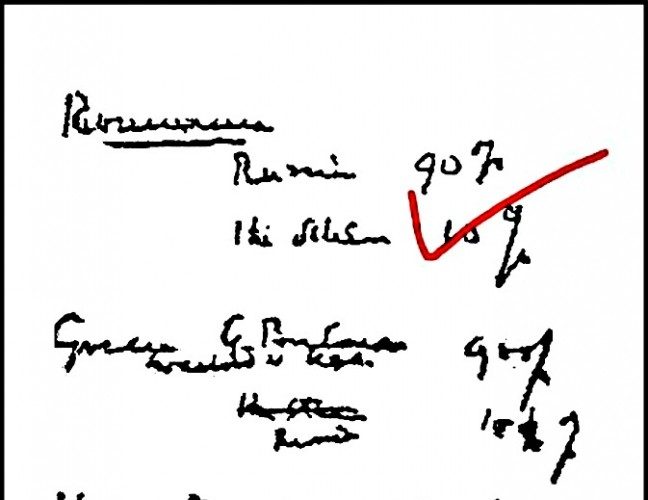 Roumania
Russia 90%
The others 10%
Greece G. Britain 90%
in accord w USA.
Russia 10%